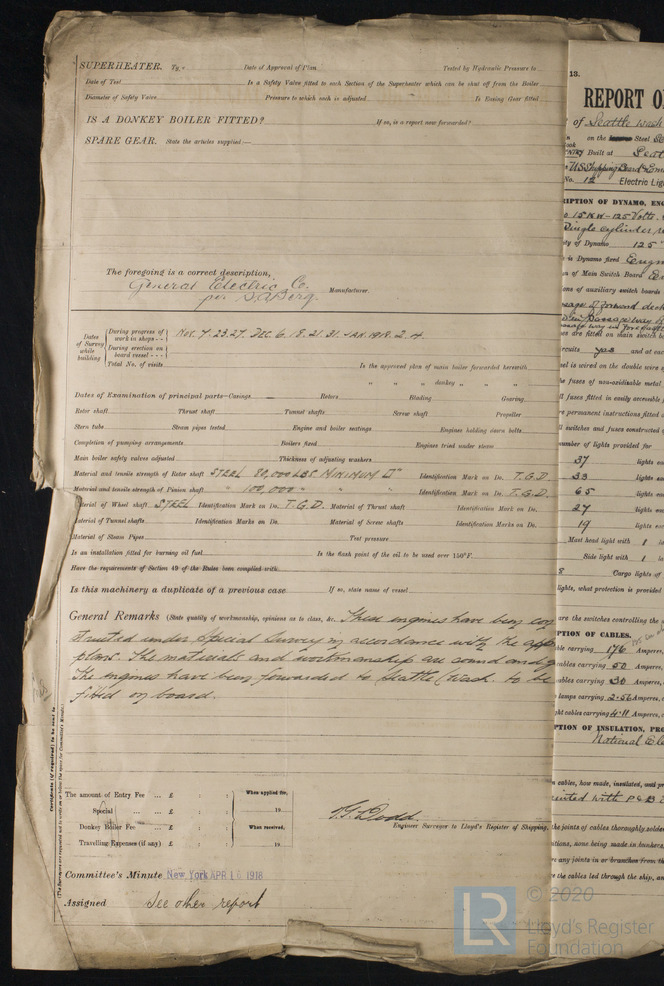 SUPERHEATER. Type Date of Approval of Plan Tested by Hydraulic Pressure to
Date of Test Is a Safety Valve fitted to each Section of the Superheater which can be shut off from the Boiler
Diameter of Safety Valve Pressure to which each is adjusted Is Easing Gear fitted
IS A DONKEY BOILER FITTED? If so, is a report now forwarded?
SPARE GEAR. State the articles supplied:—
The foregoing is a correct description,
General Electric Co.
per S.A. Berg. Manufacturer.
Dates of Survey while building
During progress of work in shops - - Nov. 7. 23. 27. DEC 6. 18. 21. 31. JAN. 1918. 2. 4.
During erection on board vessel - - -
Total No. of visits
Is the approved plan of main boiler forwarded herewith
" " " donkey " " "
Dates of Examination of principal parts—Casings Rotors Blading Gearing
Rotor shaft Thrust shaft Tunnel shafts Screw shaft Propeller
Stern tube Steam pipes tested Engine and boiler seatings Engines holding down bolts
Completion of pumping arrangements Boilers fixed Engines tried under steam
Main boiler safety valves adjusted Thickness of adjusting washers
Material and tensile strength of Rotor shaft STEEL 80,000 LBS. MINIMUM □" Identification Mark on Do. T.G.D.
Material and tensile strength of Pinion shaft " 100,000 " " " Identification Mark on Do. T.G.D.
Material of Wheel shaft STEEL Identification Mark on Do. T.G.D. Material of Thrust shaft Identification Mark on Do.
Material of Tunnel shafts Identification Marks on Do. Material of Screw shafts Identification Marks on Do.
Material of Steam Pipes Test pressure
Is an installation fitted for burning oil fuel Is the flash point of the oil to be used over 150°F.
Have the requirements of Section 49 of the Rules been complied with
Is this machinery a duplicate of a previous case If so, state name of vessel
General Remarks (State quality of workmanship, opinions as to class, &c. These engines have been con
structed under Special Survey in accordance with the app
plans. The materials and workmanship are sound and g
The engines have been forwarded to Seattle (Wash. to be
fitted on board.
Certificate (if required) to be sent to
(The Surveyors are requested not to write on or below the space for Committee's Minute.)
The amount of Entry Fee ... £ : : When applied for,
Special ... £ : : 19
Donkey Boiler Fee ... £ : : When received,
Travelling Expenses (if any) £ : : 19
T.G. Dodd.
Engineer Surveyor to Lloyd's Register of Shipping.
Committee's Minute New York APR 16 1918
Assigned See other report
13.
REPORT O
of Seattle Wash
on the Steel
Built at Seat
US Shipping Board Eme
No. 12 Electric Lig
IPTION OF DYNAMO, ENG
15 KW - 125 Volts.
Single cylinder
ty of Dynamo 125
is Dynamo fixed Engin
n of Main Switch Board
ons of auxiliary switch boards
es are fitted on main switch b
rcuits yes and at eac
sel is wired on the double wire s
the fuses of non-oxidisable metal
ll fuses fitted in easily accessible
re permanent instructions fitted
l switches and fuses constructed o
number of lights provided for
37 lights ea
33 lights ea
65 lights ea
27 lights ea
19 lights ea
Mast head light with 1 l
Side light with 1 l
8 Cargo lights of
lights, what protection is provided
are the switches controlling the
PTION OF CABLES.
ble carrying 176 Amperes,
cables carrying 50 Amperes,
cables carrying 30 Amperes,
lamps carrying 2.56 Amperes,
ght cables carrying 4.11 Amperes,
PTION OF INSULATION, PRO
National Ele
n cables, how made, insulated, and pr
ted with P & B
the joints of cables thoroughly solder
tions, none being made in bunkers,
re any joints in or branches from th
the cables led through the ship, an
LR © 2020
Lloyd's Register
Foundation